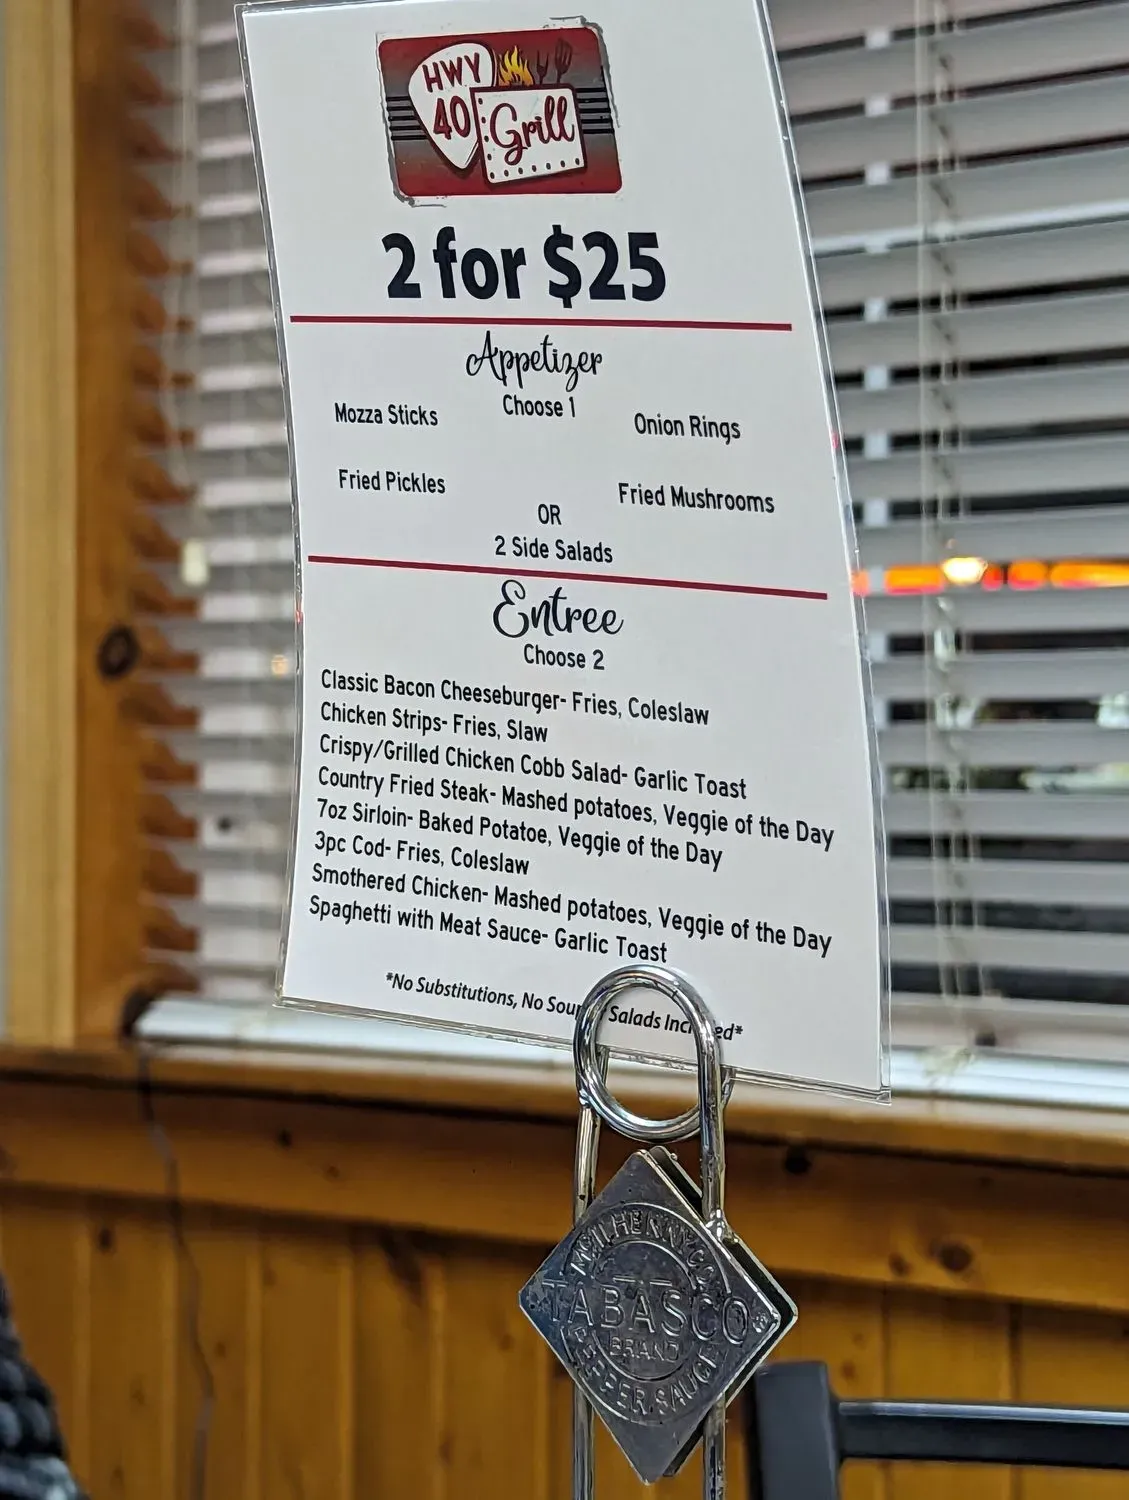 HWY
40
Grill
2 for $25
Appetizer
Choose 1
Mozza Sticks
Onion Rings
Fried Pickles
Fried Mushrooms
OR
2 Side Salads
Entree
Choose 2
Classic Bacon Cheeseburger- Fries, Coleslaw
Chicken Strips- Fries, Slaw
Crispy/Grilled Chicken Cobb Salad- Garlic Toast
Country Fried Steak- Mashed potatoes, Veggie of the Day
7oz Sirloin- Baked Potatoe, Veggie of the Day
3pc Cod- Fries, Coleslaw
Smothered Chicken- Mashed potatoes, Veggie of the Day
Spaghetti with Meat Sauce- Garlic Toast
*No Substitutions, No Salads
McILHENNY CO.
TABASCO
BRAND
PEPPER SAUCE